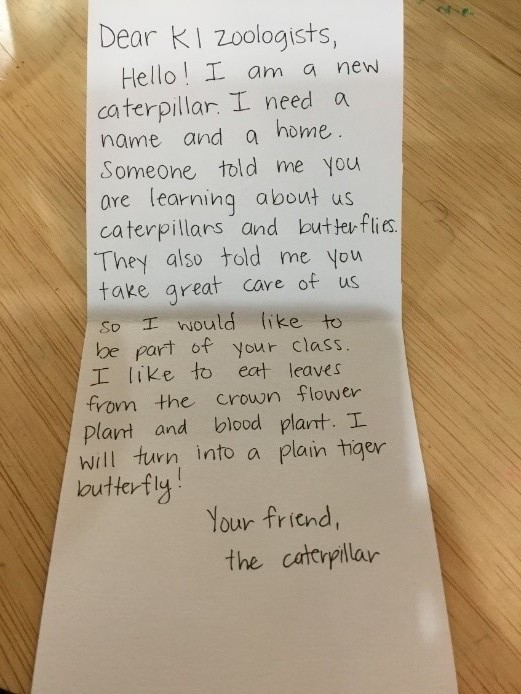 Dear K1 zoologists,
Hello! I am a new
caterpillar. I need a
name and a home.
Someone told me you
are learning about us
caterpillars and butterflies.
They also told me you
take great care of us
so I would like to
be part of your class.
I like to eat leaves
from the crown flower
plant and blood plant. I
will turn into a plain tiger
butterfly!
Your friend,
the caterpillar